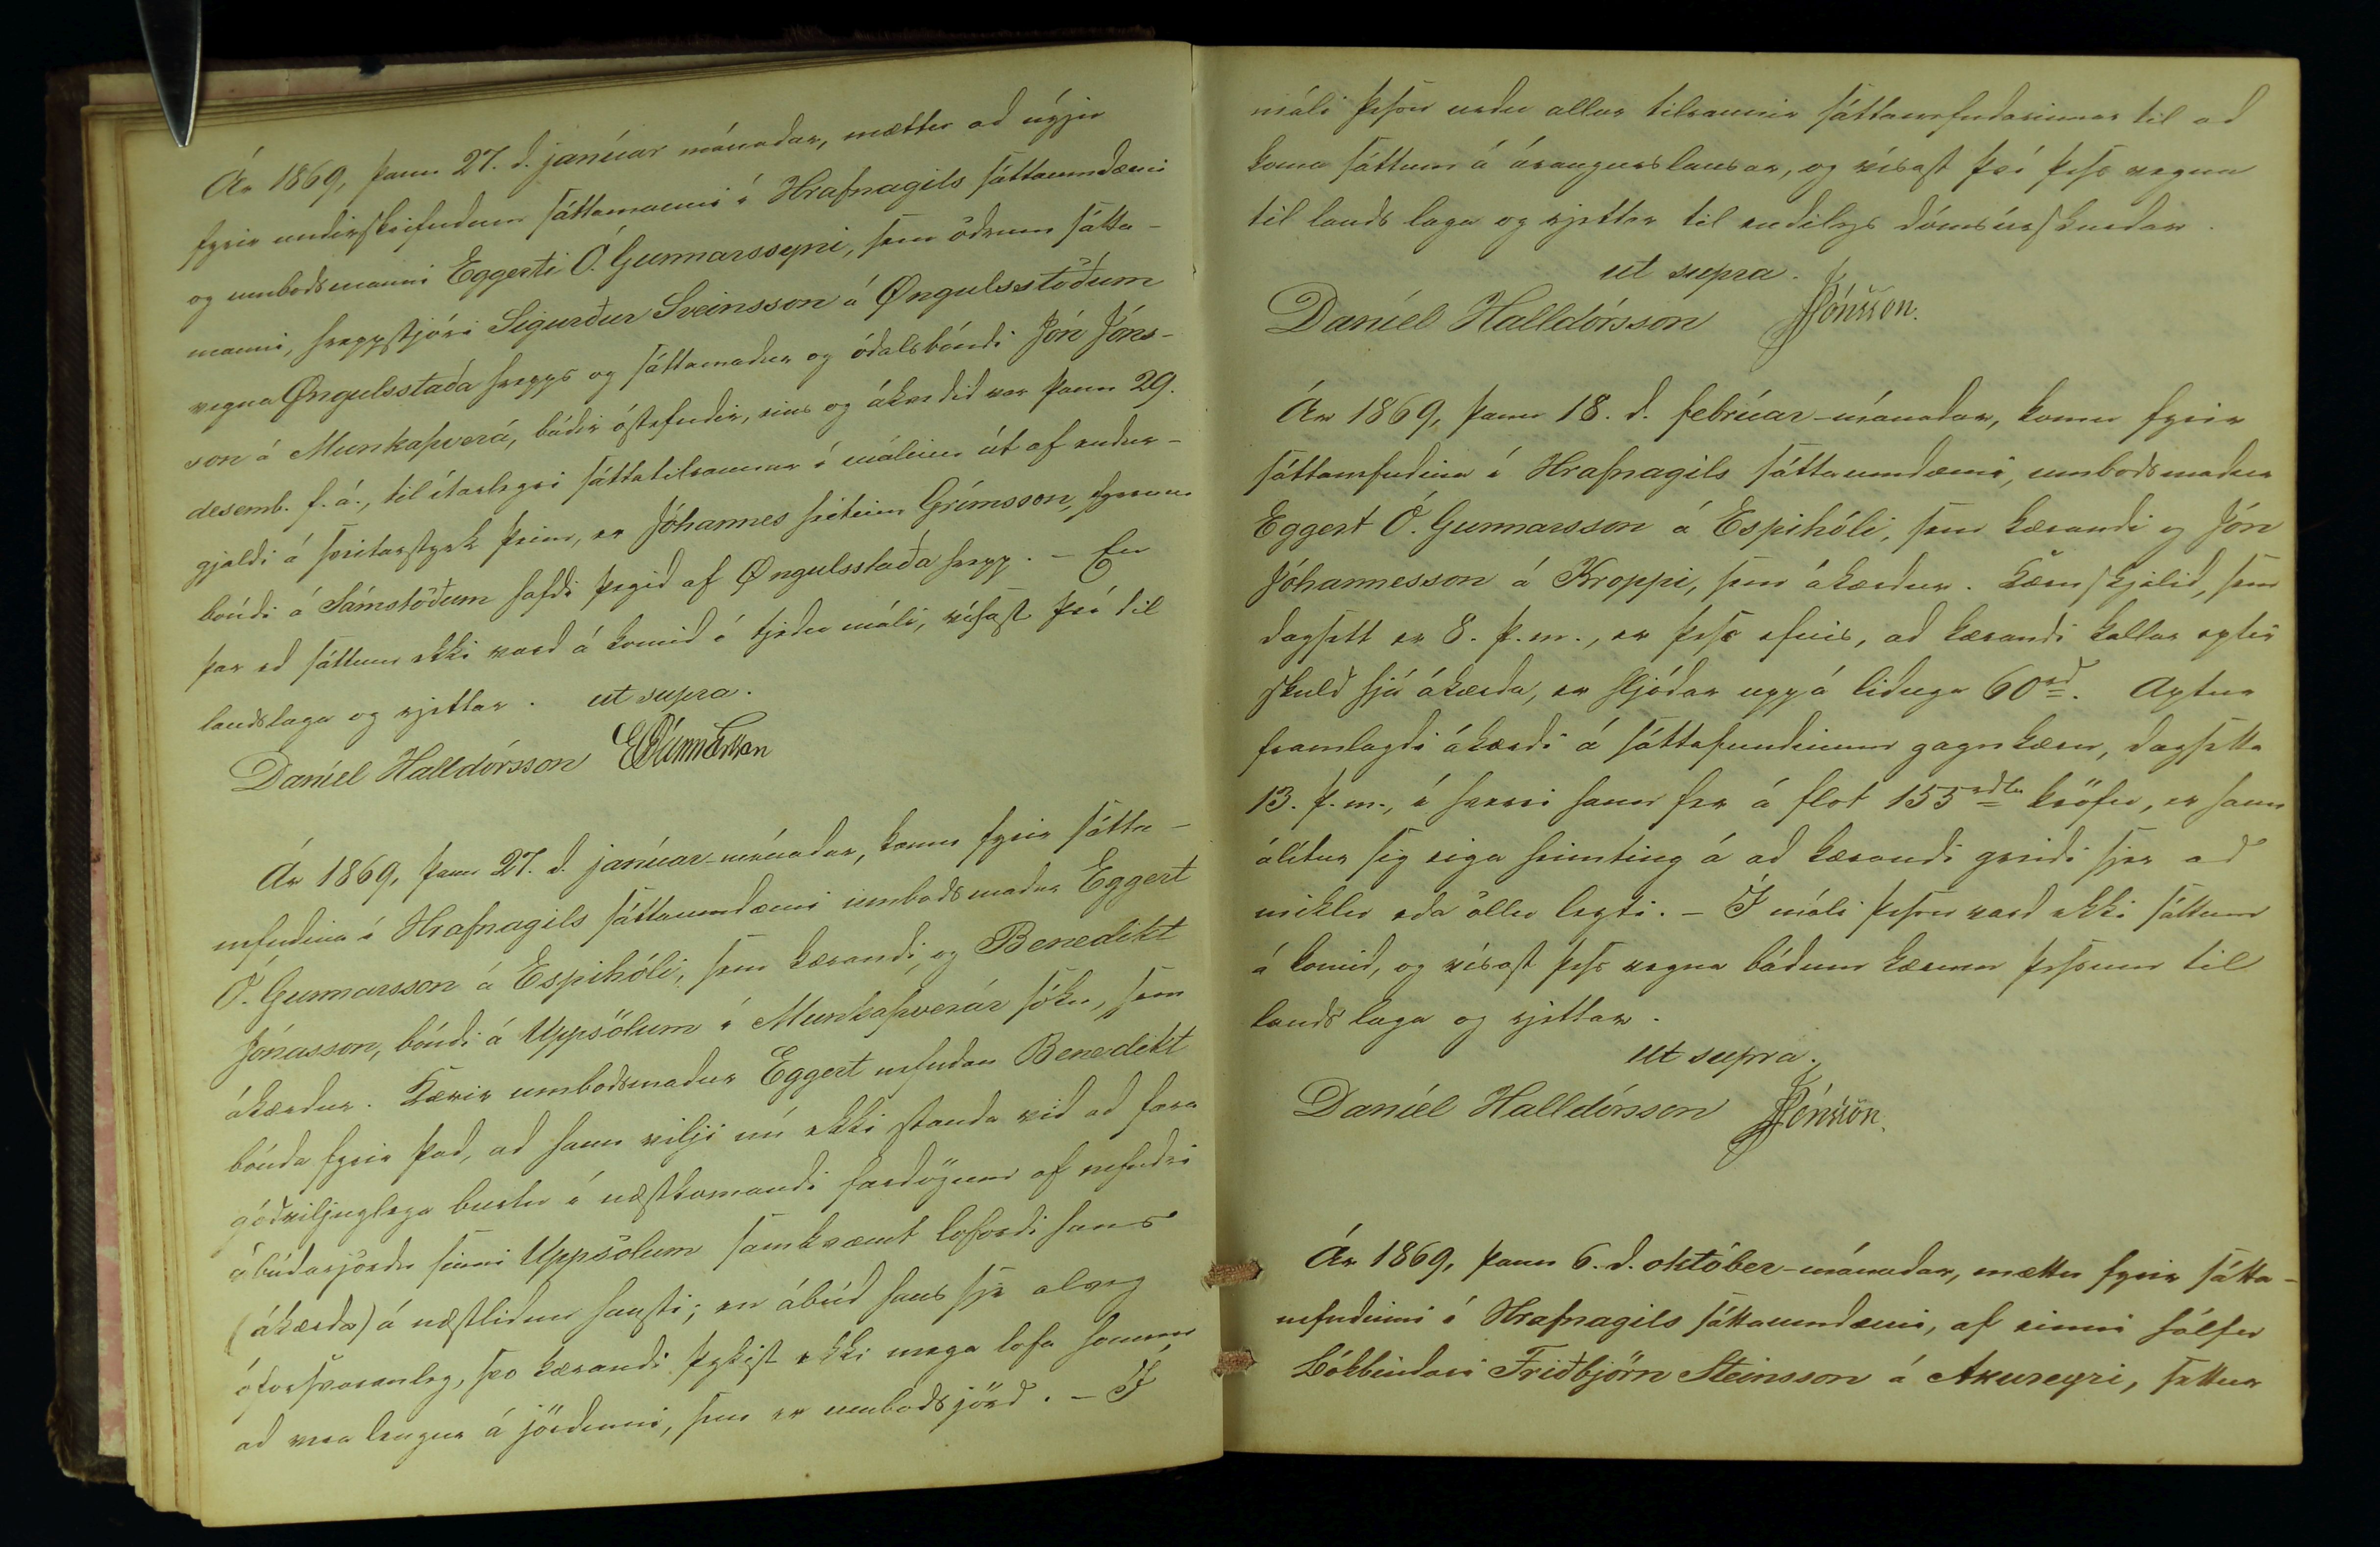 Ár 1869, þann 27. d. janúar mánaðar, mættu að nýju
fyrir undirskrifuðum sáttamanni í Hrafnagils sáttaumdæmi
og umboðsmanni Eggerti Ó. Gunnarssyni, sem öðrum sátta-
manni, hreppstjóri Sigurður Sveinsson á Øngulsstöðum
vegna Øngulsstaða hrepps og sáttamaður og óðalsbóndi Jón Jóns-
son á Munkaþverá, báðir óstefndir, eins og ákvedið var þann 29.
desemb. f. á., til ítarlegri sáttatilraunar í málinu út af endur-
gjaldi á sveitarstyrk þeim, er Jóhannes heitinn Grímsson, fyrrum
bóndi á Sámstöðum hafði þegið af Øngulsstaða hrepp. – En
þar eð sáttum ekki varð á komið í tjeðu máli, vísast því til
landslaga og rjettar. ut supra.
Daníel Halldórsson EÓGunnarsson
Ár 1869, þann 27. d. janúar-mánaðar, komu fyrir sátta-
nefndina í Hrafnagils sáttaumdæmi umboðsmaður Eggert
Ó. Gunnarsson á Espihóli, sem kærandi, og Benedikt
Jónasson, bóndi á Uppsölum í Munkaþverár sókn, sem
ákærður. Kærir umboðsmaður Eggert nefndan Benedikt
bónda fyrir það, að hann vilji nú ekki standa við að fara
góðviljuglega burtu í næstkomandi fardögum af nefndri
ábúðarjörðu sinni Uppsölum samkvæmt loforði hans
(ákærða) á næstliðnu hausti; en ábúð hans sje alveg
óforsvaranleg, svo kærandi þykist ekki mega lofa honum,
að vera lengur á jörðunni, sem er umboðsjörð. – Í
máli þessu urðu allar tilraunir sáttanefndarinnar til að
koma sáttum á árangurslausar, og vísast því þess vegna
til lands laga og rjettar til endilegs dómsúrskurðar.
ut supra.
Daníel Halldórsson JJónsson.
Ár 1869, þann 18. d. febrúar-mánaðar, komu fyrir
sáttanefndina í Hrafnagils sáttaumdæmi, umboðsmaður
Eggert Ó. Gunnarsson á Espihóli, sem kærandi og Jón
Jóhannesson á Kroppi, sem ákærður. Kæruskjalið, sem
dagsett er 8. þ. m., er þess efnis, að kærandi kallar eptir
skuld hjá ákærða, er hljóðar uppá liðuga 60rd. Aptur
framlagði ákærði á sáttafundinum gagnkæru, dagsetta
13. þ. m., í hverri hann fer á flot 155rdla kröfu, er hann
álítur sig eiga heimting á að kærandi greiði sjer að
miklu eða öllu leyti. – Í máli þessu varð ekki sáttum
á komið, og vísast þess vegna báðum kærum þessum til
lands laga og rjettar.
ut supra.
Daníel Halldórsson JJónsson.
Ár 1869, þann 6. d. október-mánaðar, mættu fyrir sátta-
nefndinni í Hrafnagils sáttaumdæmi, af sinni hálfu
bókbindari Friðbjörn Steinsson á Akureyri, settur